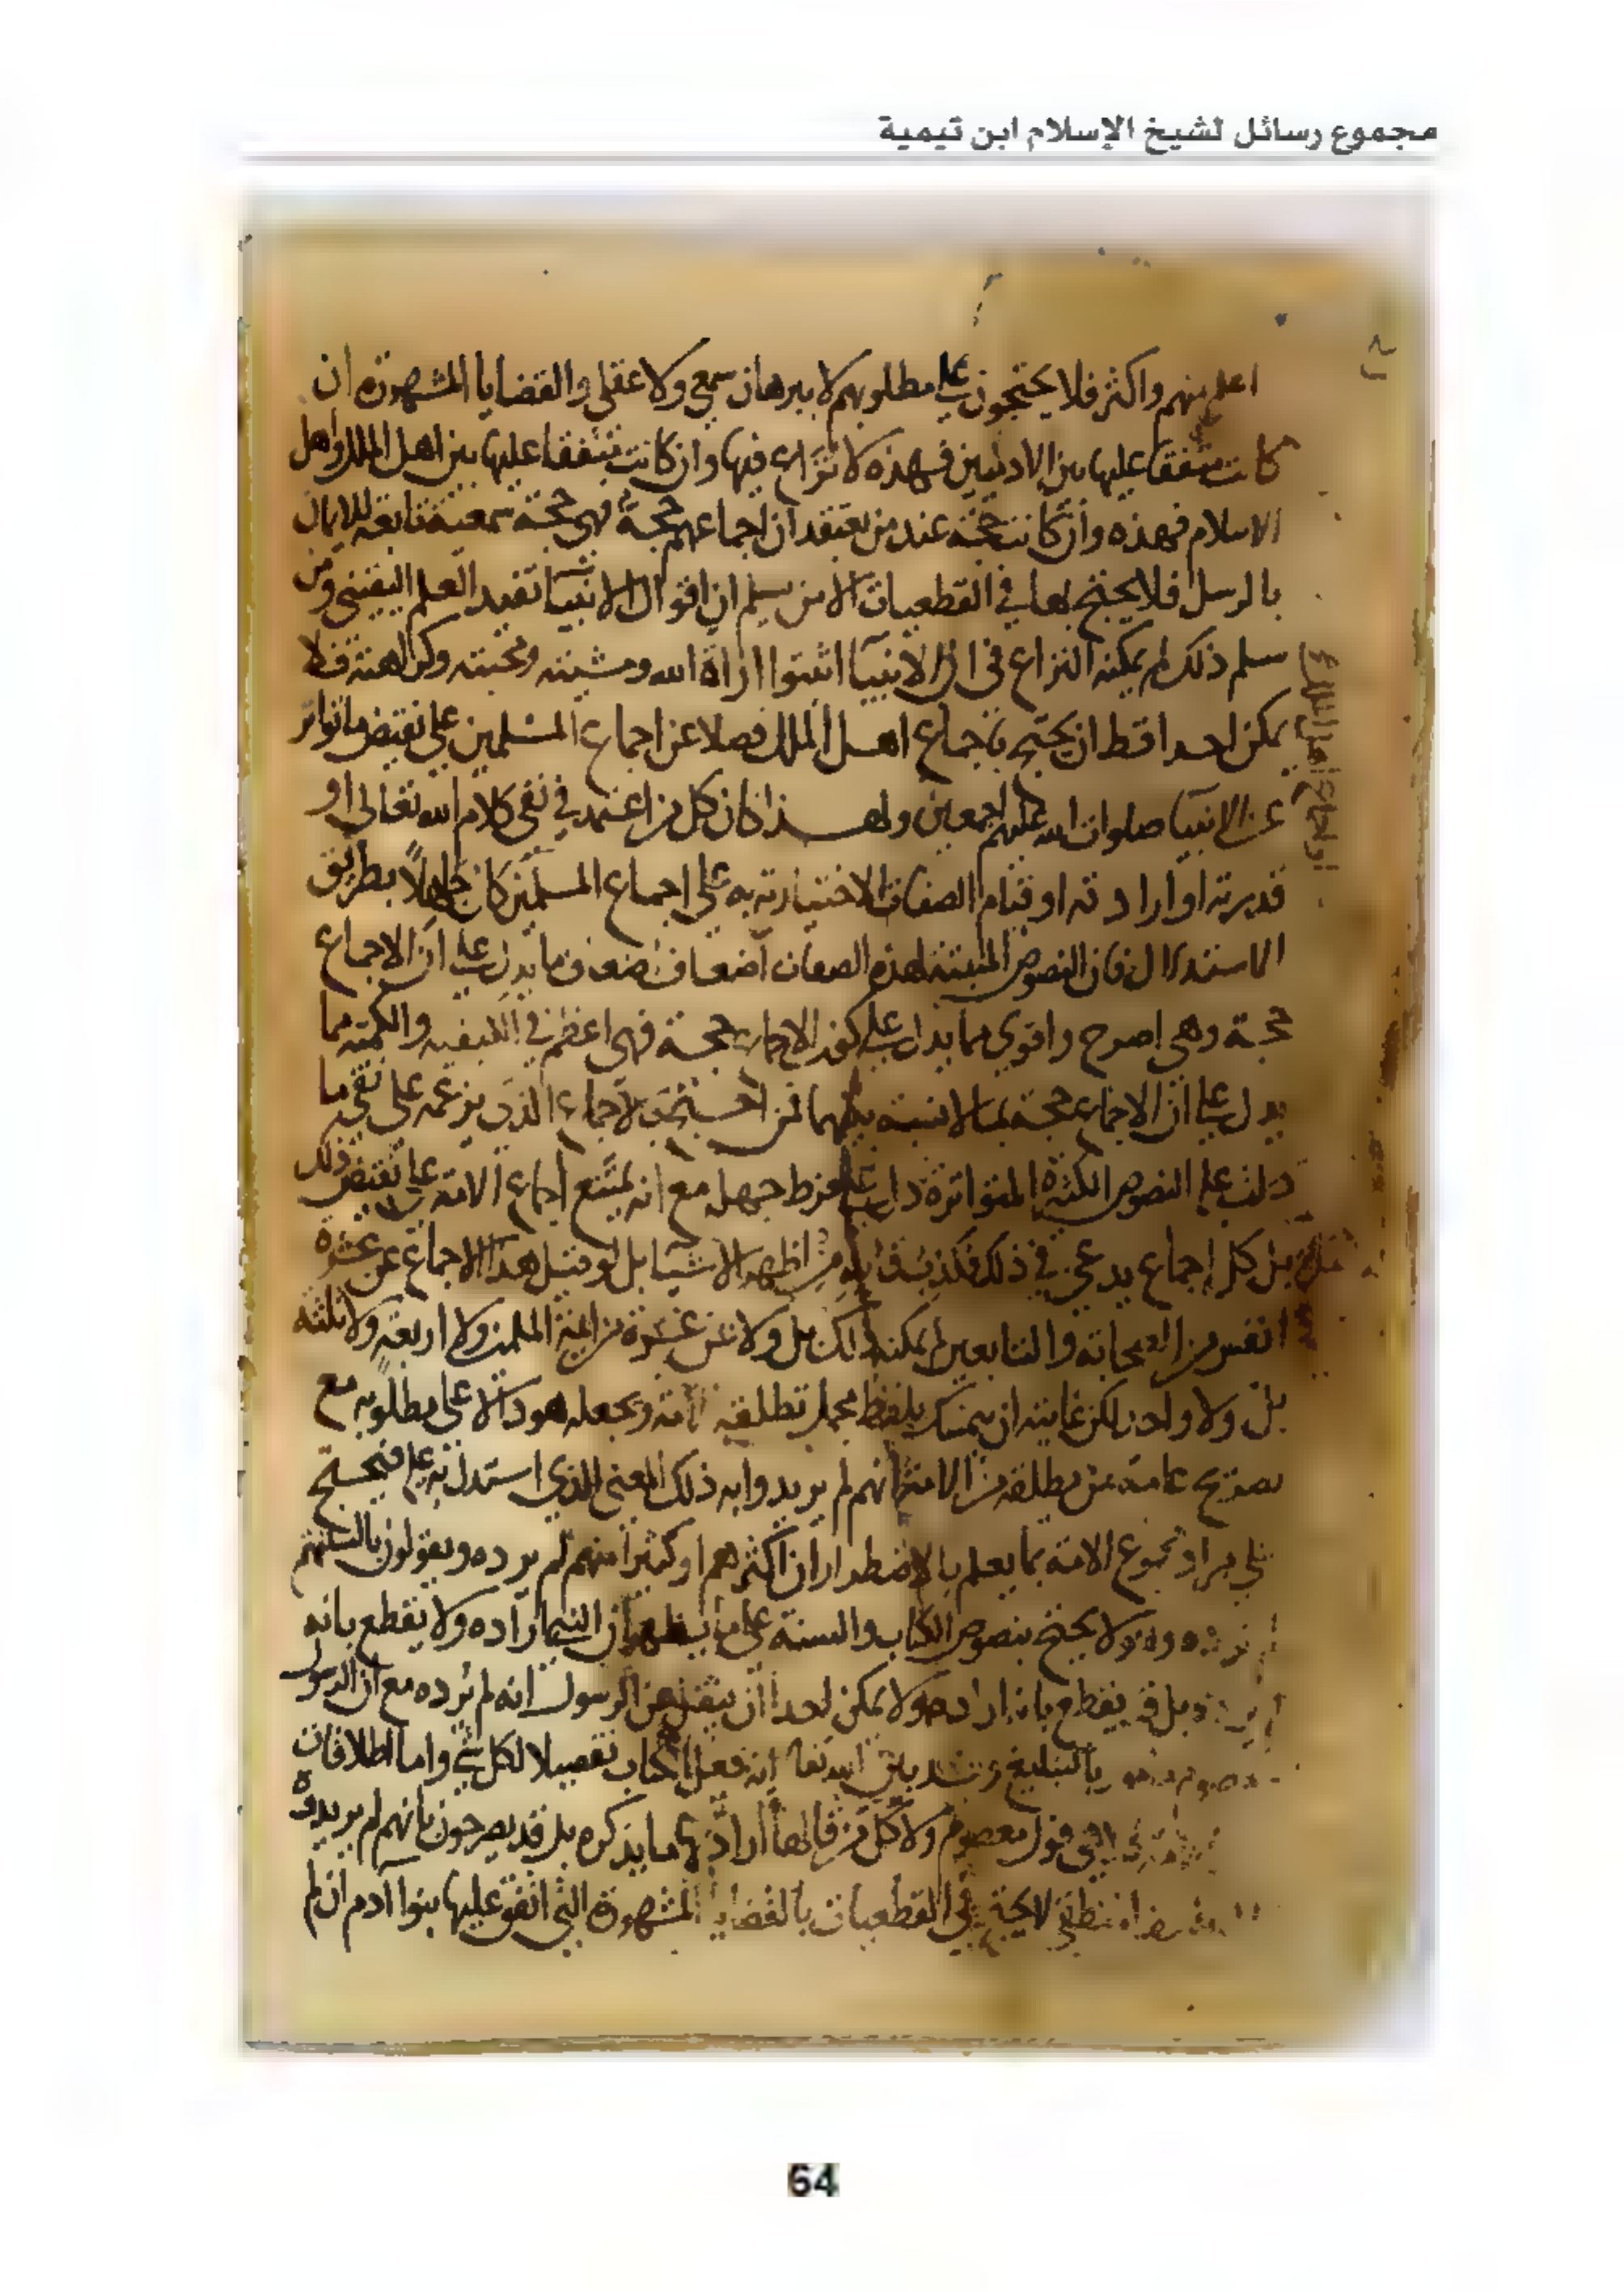 مجموع رسائل لشيخ الإسلام ابن تيمية
اعلم منهم واكثر فلا يحتجون على مطلوبهم لا ببرهان سمعي ولا عقلي والقضايا المشهورة ان
كانت متفقا عليها بين الادميين فهذه لا نزاع فيها وان كانت متفقا عليها بين اهل الملل واهل
الاسلام فهذه وان كانت حجة عند من يعتقد ان اجماعهم حجة فهي حجة سمعية تابعة للايمان
بالرسل فلا يحتج بها في القطعيات الا من يسلم ان اقوال الانبيا تفيد العلم اليقيني ومن
سلم ذلك لم يمكنه النزاع في ان الانبيا اثبتوا ارادة الله ومشيئته ومحبته وكراهته فلا
يمكن احدا قط ان يحتج باجماع اهل الملل فضلا عن اجماع المسلمين على نقيض ما تواتر
عن الانبيا صلوات الله عليهم اجمعين ولهذا كان كل من اعتمد في نفي كلام الله تعالى او
قدرته او ارادته او قيام الصفات الاختيارية به على اجماع المسلمين كان جاهلا بطريق
الاستدلال فان النصوص المثبتة لهذه الصفات اضعاف اضعاف ما يدل على ان الاجماع
حجة وهي اصرح واقوى مما يدل على كون الاجماع حجة فهي اعظم في الكيفية والكمية مما
يدل على ان الاجماع حجة بما لا نسبة بينهما فمن احتج بالاجماع الذي يزعمه على نفي ما
دلت عليه النصوص الكثيرة المتواترة دل على فرط جهله مع انه يمتنع اجماع الامة على نقيض ذلك
بل كل اجماع يدعى في ذلك فكذبه من اظهر الاشيا بل لو قيل هذا الاجماع عن عشرة
انفس من الصحابة والتابعين لم يمكنه ذلك بل ولا عن عشرة من ايمة المسلمين ولا اربعة ولا ثلثة
بل ولا واحد لكن غايته ان يتمسك بلفظ مجمل تطلقه الامة ويجعله هو دالا على مطلوبه مع
تصريح عامة من يطلقه من الامة انهم لم يريدوا به ذلك المعنى الذي استدل به عليه فيحتج
على مراد مجموع الامة بما يعلم بالاضطرار ان اكثرهم او كثيرا منهم لم يرده ويقولون بالسنتهم
لم نرده وهو لا يحتج بنصوص الكتاب والسنة على ما يظهر ان النبي اراده ولا يقطع بانه
بل قد يقطع بانه اراده ولا يمكن احدا ان ينقل عن الرسول انه لم يرده مع ان الرسول
معصوم مامور بالتبليغ وقد بين الله تعا انه فعل الكتاب تفصيلا لكل شي واما اطلاقات
قول معصوم ولا كل من قالها اراد بها ما يذكره بل قد يصرحون بانهم لم يريدوه
المنطقي لا يحتج في القطعيات بالقضايا المشهورة التي اتفق عليها بنو ادم ان لم
64